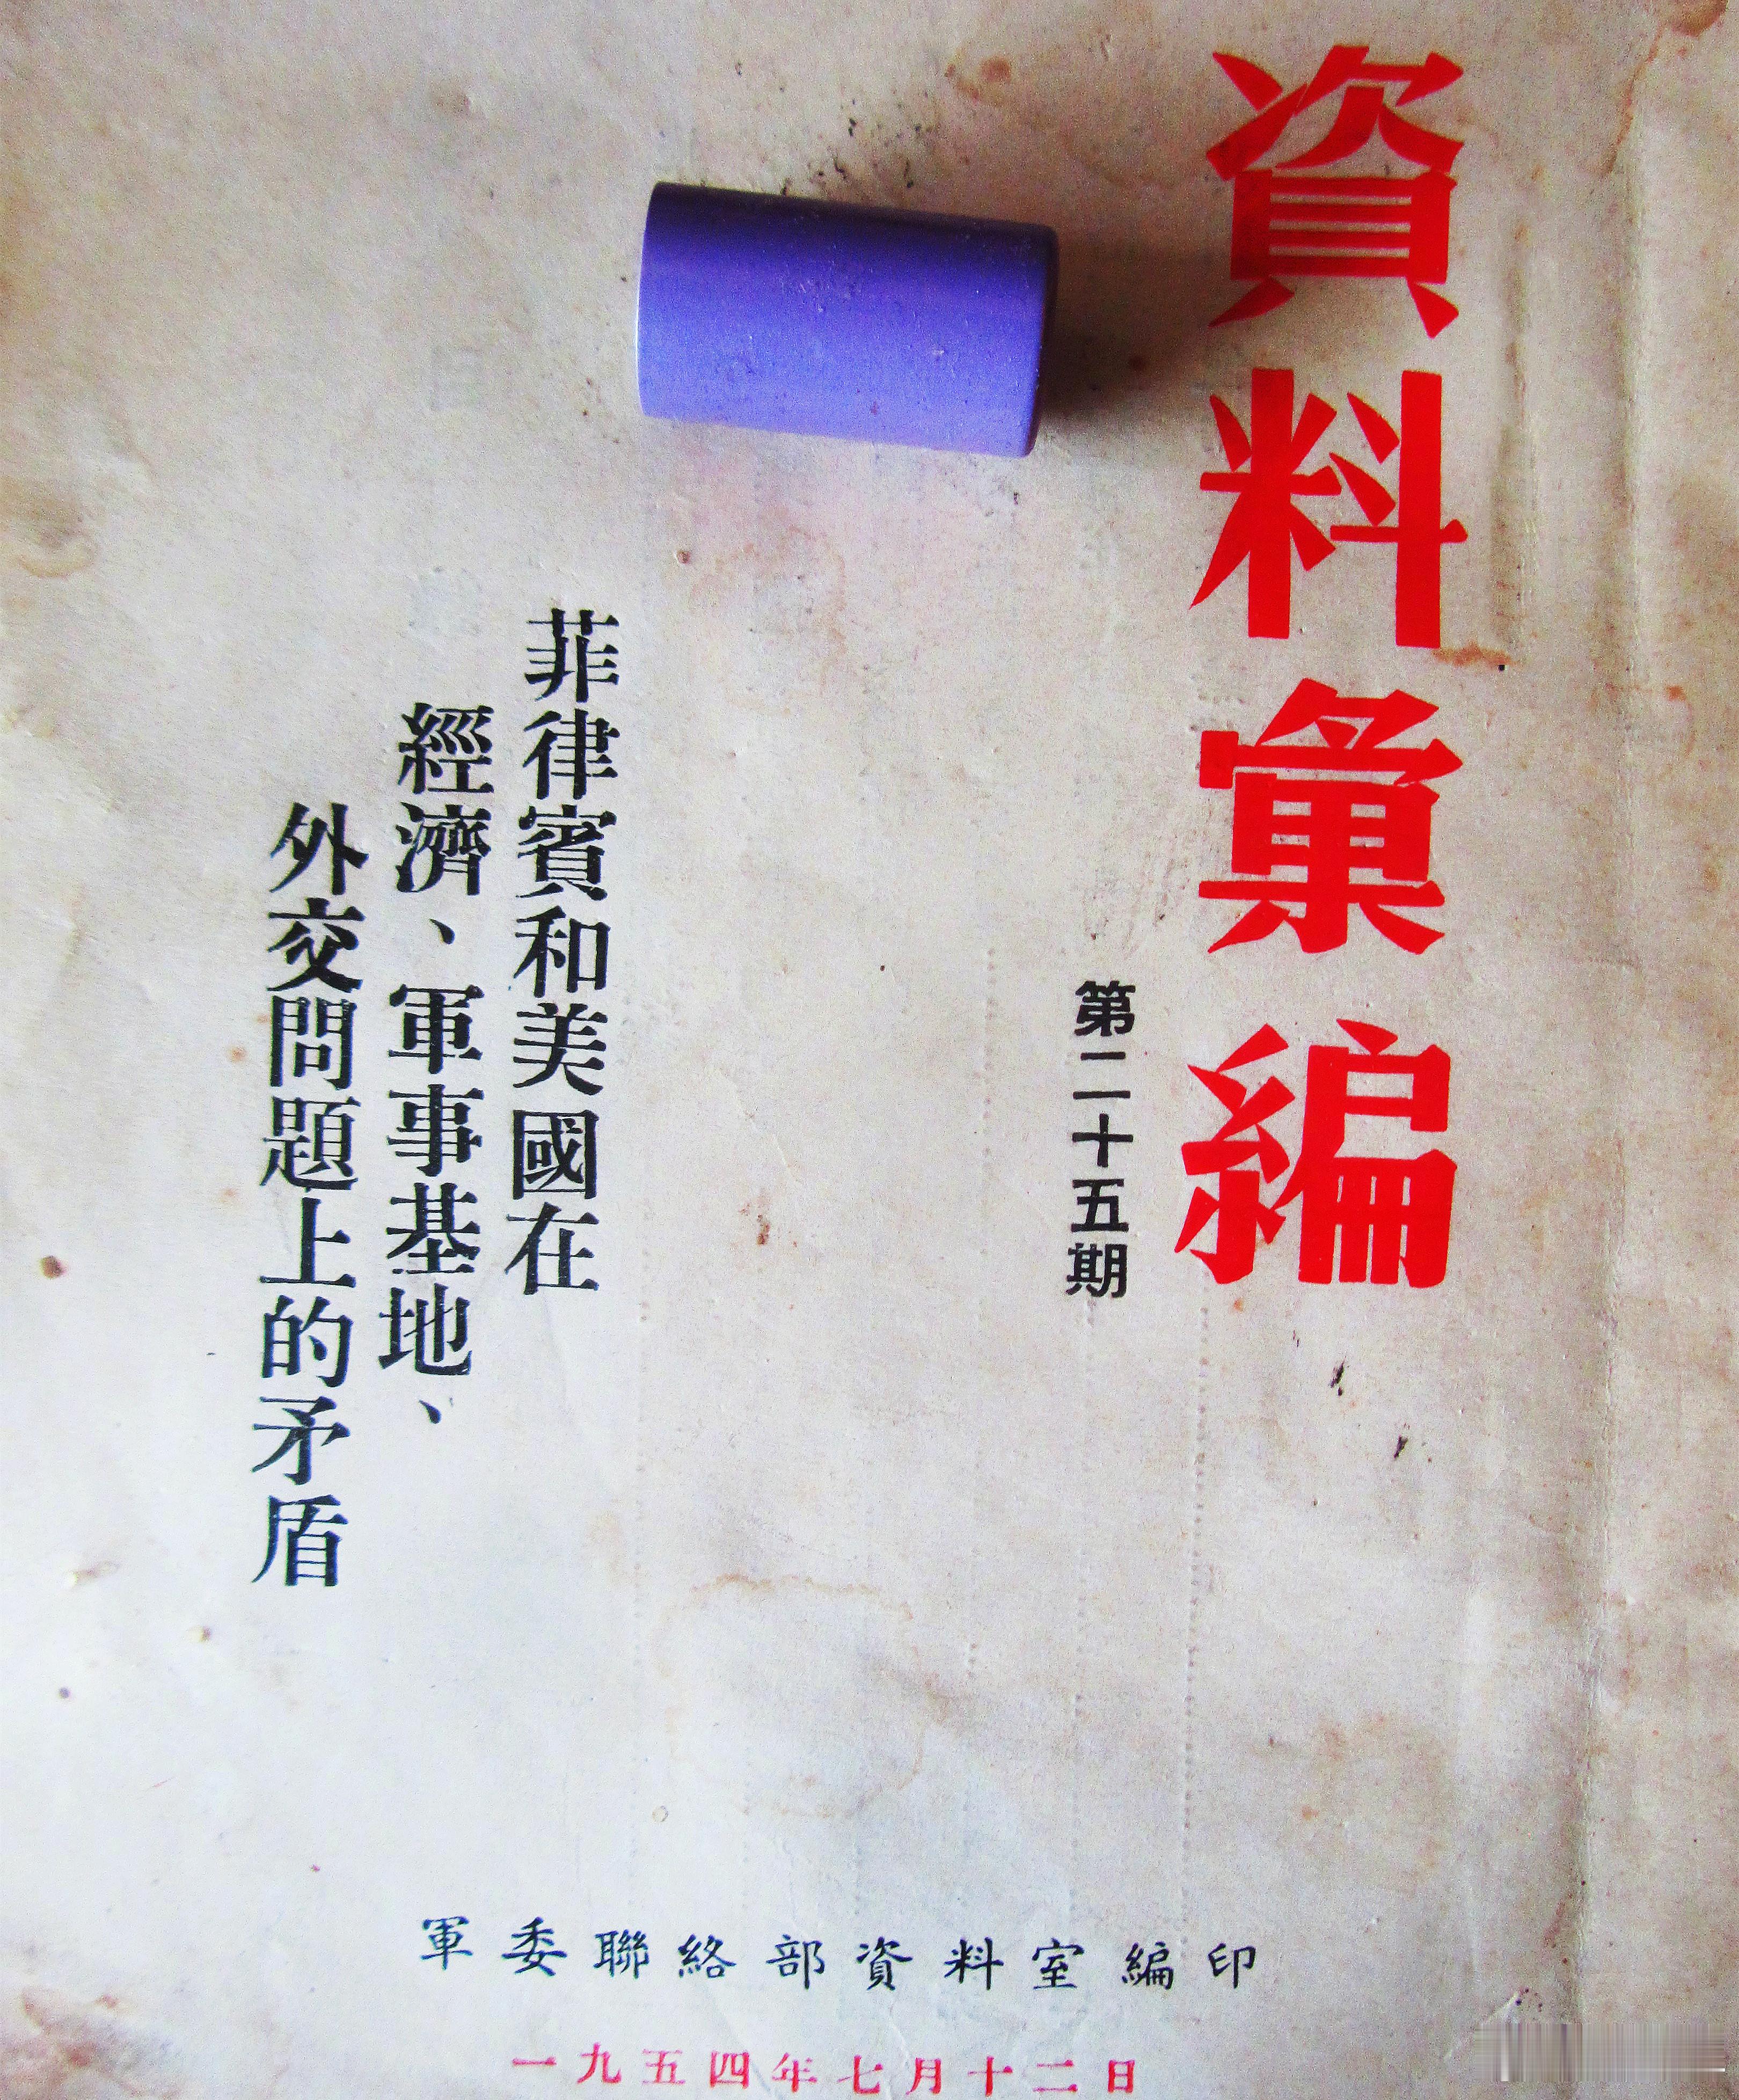 資料彙編
第二十五期
菲律賓和美國在
經濟、軍事基地、
外交問題上的矛盾
軍委聯絡部資料室編印
一九五四年七月十二日